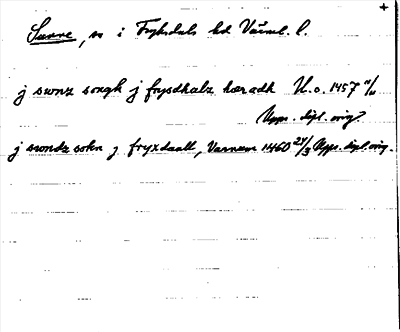 +
Sunne, sn i Fryksdals hd Värml. l.
j swnz songh j frysdhalz hæradh U.o. 1457 11/11
Upps. dipl. orig.
j swndz sokn j fryxdaall, Varnum 1460 24/3 Upps. dipl. orig.